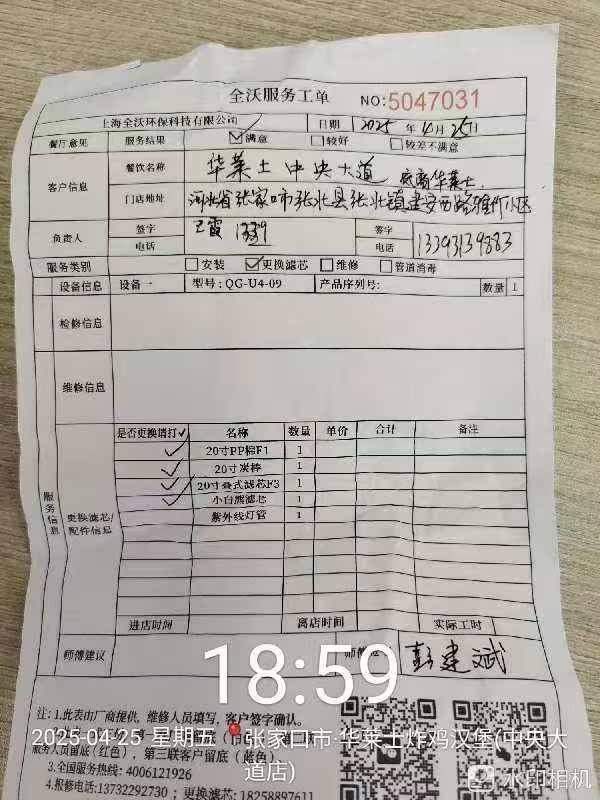 全沃服务工单 NO:5047031
上海全沃环保科技有限公司 日期 2025 年 4 月 25 日
餐厅意见 服务结果 ☑满意 □较好 □较差不满意
客户信息 餐饮名称 华莱士 中央大道
门店地址 河北省张家口市张北县张北镇建安西路
负责人 签字 签字
电话 1339 电话 13393139883
服务类别 □安装 ☑更换滤芯 □维修 □管道消毒
设备信息 设备一 型号: QG-U4-09 产品序列号: 数量 1
检修信息
维修信息
服务信息 更换滤芯/配件信息
是否更换请打✓ 名称 数量 单价 合计 备注
✓ 20寸PP棉F1 1
✓ 20寸炭棒 1
✓ 20寸叠式滤芯F3 1
✓ 小白熊滤芯 1
紫外线灯管 1
进店时间 离店时间 实际工时
师傅建议 彭建斌
18:59
注: 1.此表由厂商提供, 维修人员填写, 客户签字确认。
2025-04-25 星期五 张家口市·华莱士炸鸡汉堡(中央大道店)
服务人员留底(红色), 第三联客户留底(蓝色)。
3.全国服务热线: 4006121926
4.报修电话: 13732292730; 更换滤芯: 18258897611
水印相机